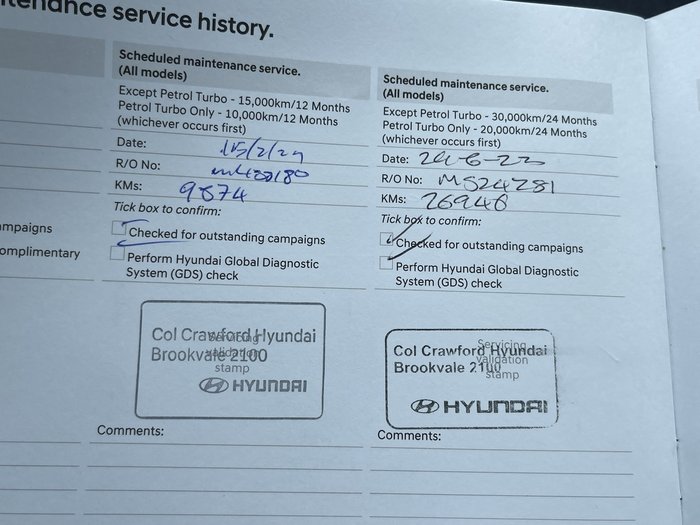 tenance service history.
Scheduled maintenance service.
(All models)
Except Petrol Turbo - 15,000km/12 Months
Petrol Turbo Only - 10,000km/12 Months
(whichever occurs first)
Date:
R/O No:
KMs: 9874
Tick box to confirm:
Checked for outstanding campaigns
Perform Hyundai Global Diagnostic
System (GDS) check
Col Crawford Hyundai
Brookvale 2100
Servicing
validation
stamp
HYUNDAI
Comments:
Scheduled maintenance service.
(All models)
Except Petrol Turbo - 30,000km/24 Months
Petrol Turbo Only - 20,000km/24 Months
(whichever occurs first)
Date:
R/O No: MS24281
KMs: 26946
Tick box to confirm:
Checked for outstanding campaigns
Perform Hyundai Global Diagnostic
System (GDS) check
Col Crawford Hyundai
Brookvale 2100
Servicing
validation
stamp
HYUNDAI
Comments:
mpaigns
omplimentary